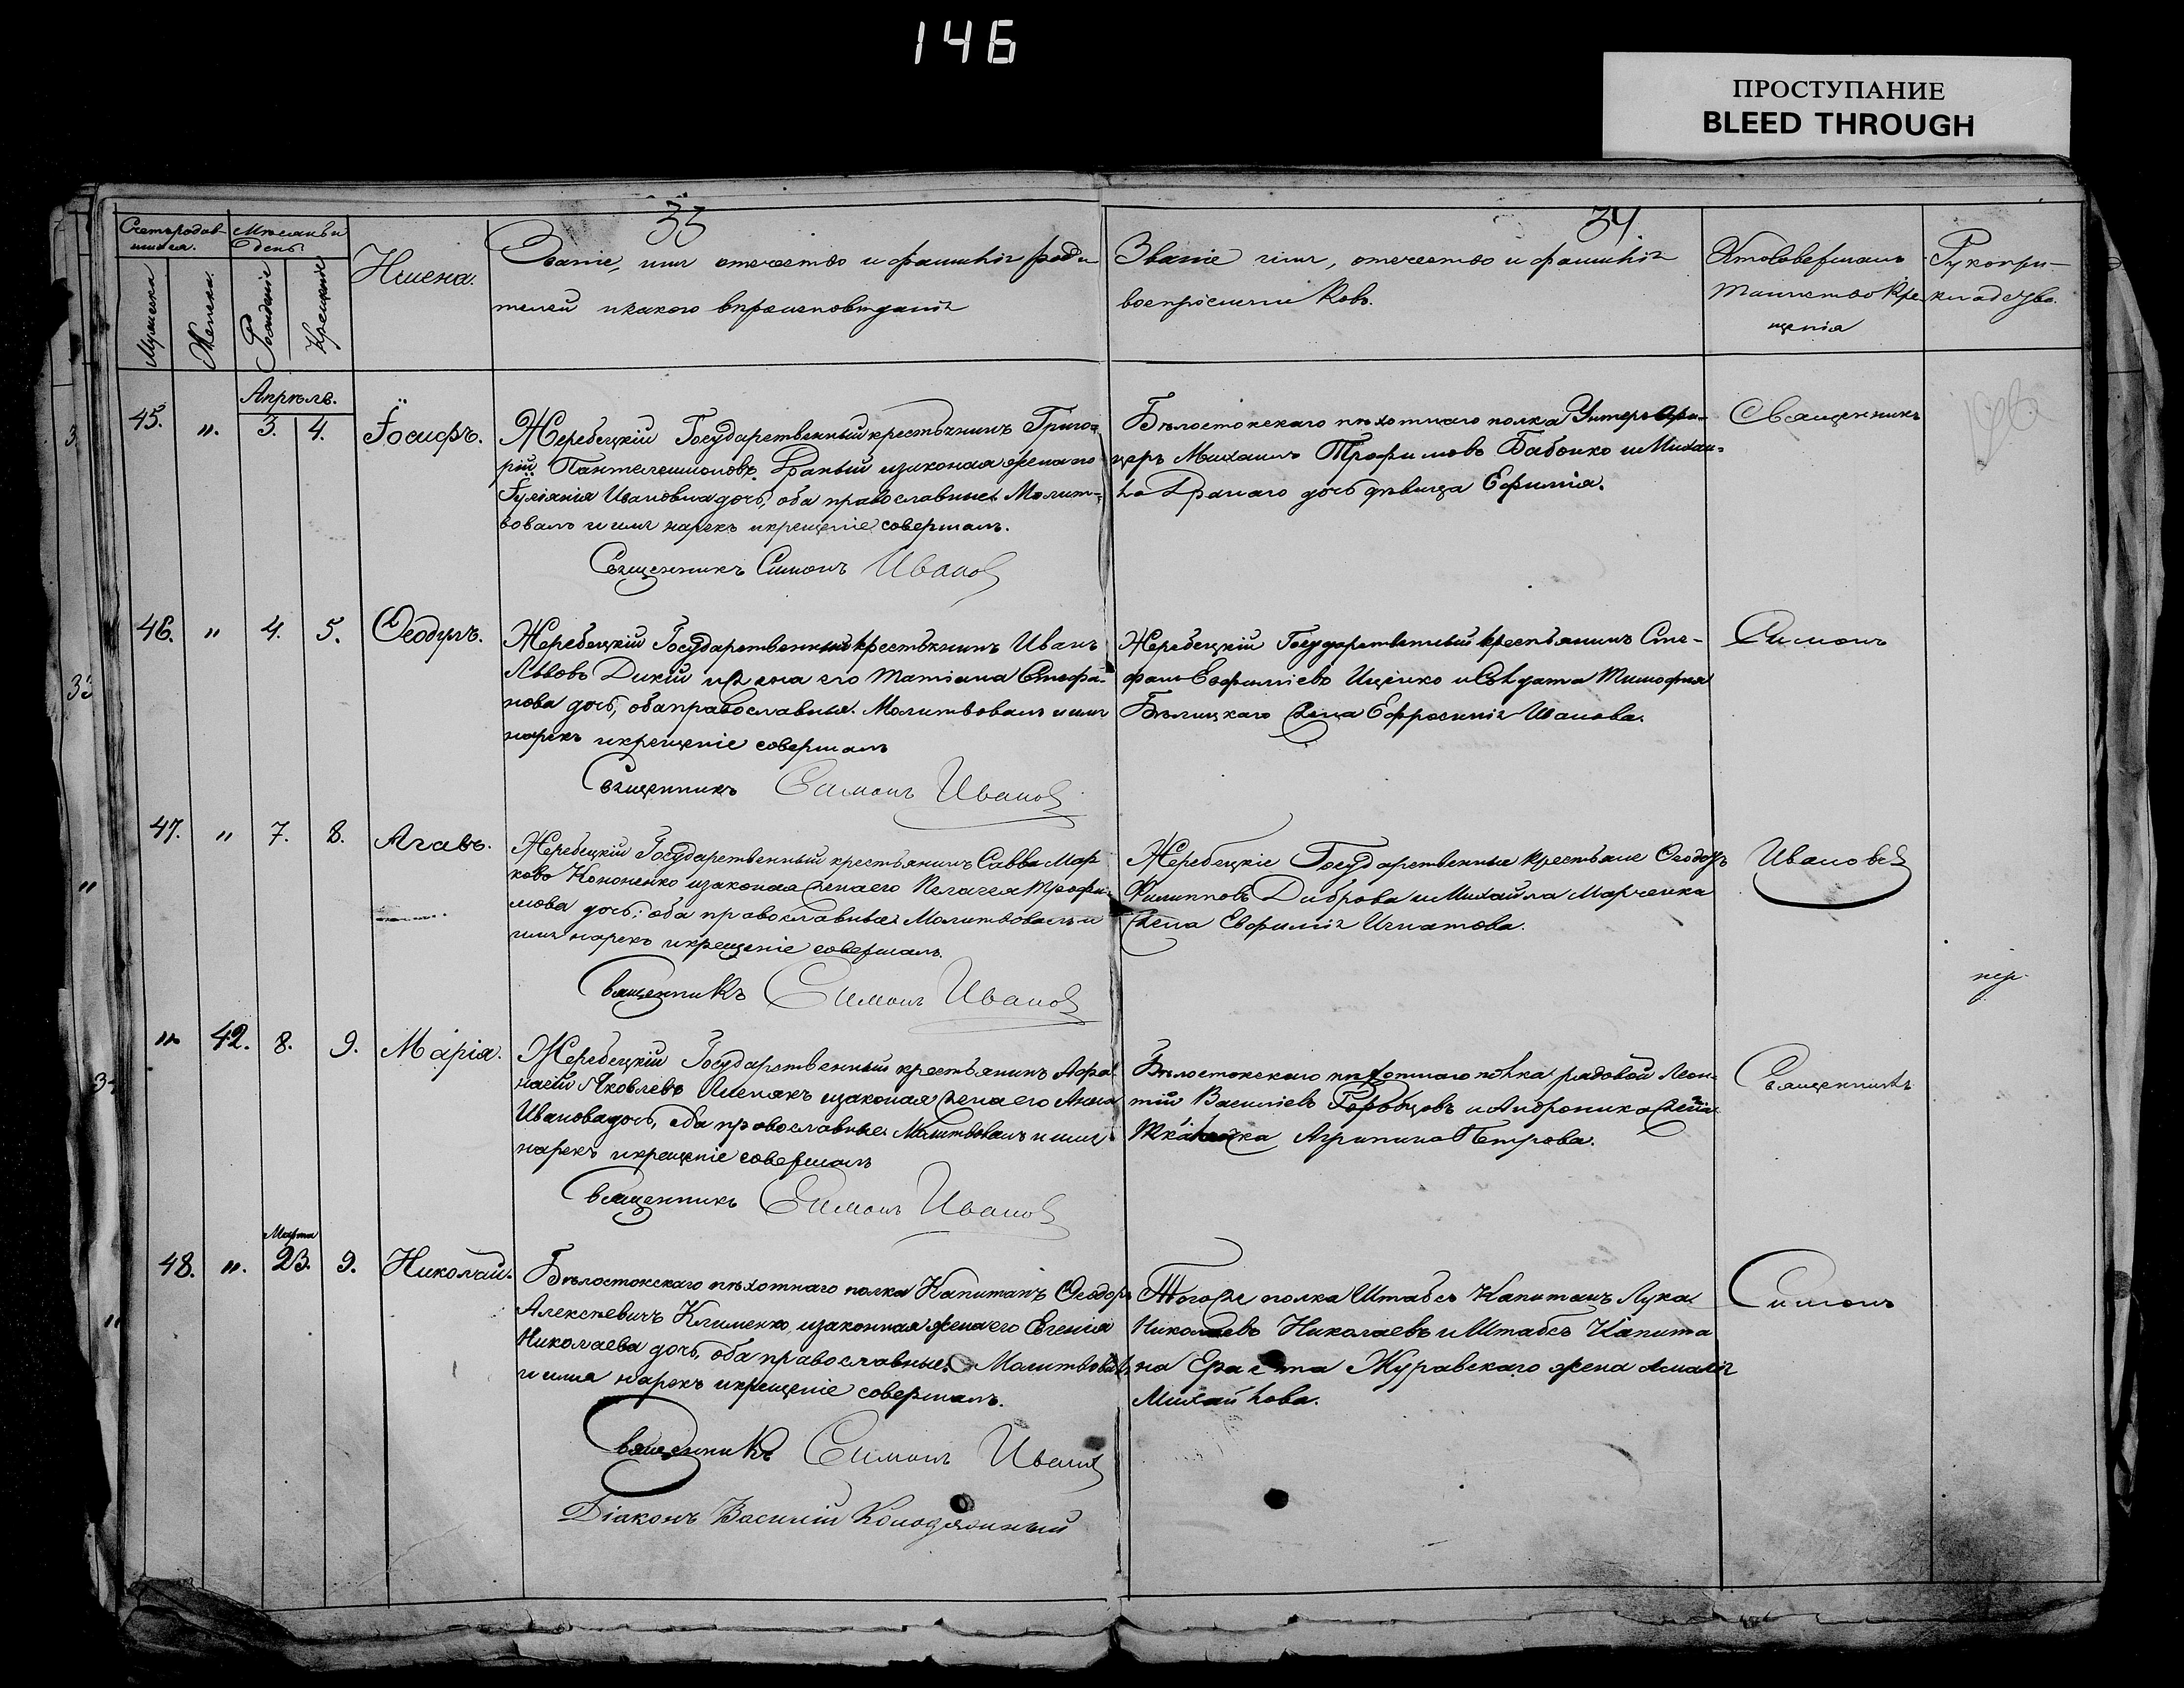 146
ПРОСТУПАНИЕ
BLEED THROUGH
33
34
Счетъ родив-
шихся.
Мѣсяцъ и
день.
Мужеска
Женска.
Рожденiе
Крещенiе
Имена.
Званiе, имя отечество и фамилiя роди
телей и какого вѣроисповѣданiя
Званiе имя, отечество и фамилiя
воспрiемниковъ.
Кто совершалъ
таинство кре
щенiя
Рукопри-
Апрѣль.
45. „. 3. 4. Iосифъ.
Жеребецкiй Государственный крестьянинъ Григо-
рiй Пантелеимоновъ Драный и законая жена его
Iулiянiя Ивановна дочь, оба православные. Молит-
вовалъ и имя нарекъ и крещенiе совершалъ.
Священникъ Симонъ Ивановъ
Бѣлостокскаго пѣхотнаго полка Унтеръ Офи-
церъ Михаилъ Трофимовъ Бабонко и Михаи-
ла Дранаго дочь дѣвица Ефимiя.
Священникъ
46. „ 4. 5. Ѳеодулъ.
Жеребецкiй Государственный крестьянинъ Иванъ
Львовъ Дикiй и жена его Татiана Стефа-
нова дочь, оба православные. Молитвовалъ и имя
нарекъ и крещенiе совершалъ
Священникъ Симонъ Ивановъ
Жеребецкiй Государственный крестьянинъ Сте-
фанъ Евфимiевъ Ищенко и Солдата Тимофея
Бѣлицкаго жена Ефросинiя Иванова.
Симонъ
47. „ 7. 8. Агавъ.
Жеребецкiй Государственный крестьянинъ Савва Мар
ковъ Кононенко и законая жена его Пелагея Трофи-
мова дочь; оба православные. Молитвовалъ и
имя нарекъ и крещенiе совершалъ.
Священникъ Симонъ Ивановъ
Жеребецкiе Государственные крестьане Ѳеодоръ
Филипповъ Диброва и Михайла Марченка
жена Евфимiя Игнатова.
Ивановъ
„ 42. 8. 9. Марiя.
Жеребецкiй Государственный крестьянинъ Афа
насiй Яковлевъ и законая жена его Анна
Иванова дочь, оба православные. Молитвовалъ и имя
нарекъ и крещенiе совершалъ
Священникъ Симонъ Ивановъ
Бѣлостокскаго пѣхотнаго полка рядовой Леон-
тiй Василiевъ и Андроника жена
Агрипина Петрова.
Священникъ
Марта
48. „. 23. 9. Николай.
Бѣлостокскаго пѣхотнаго полка Капитанъ Ѳеодоръ
Алексѣевичъ Клименко и законная жена его Евгенiя
Николаева дочь, оба православные. Молитвовалъ
и имя нарекъ и крещенiе совершалъ.
Священникъ Симонъ Ивановъ
Дiаконъ Василiй Колодяжный
Того же полка Штабсъ Капитанъ Лука
Николаевъ Николаевъ и Штабсъ Капита
на Ераста Журавскаго жена Амалiя
Михайлова.
Симонъ